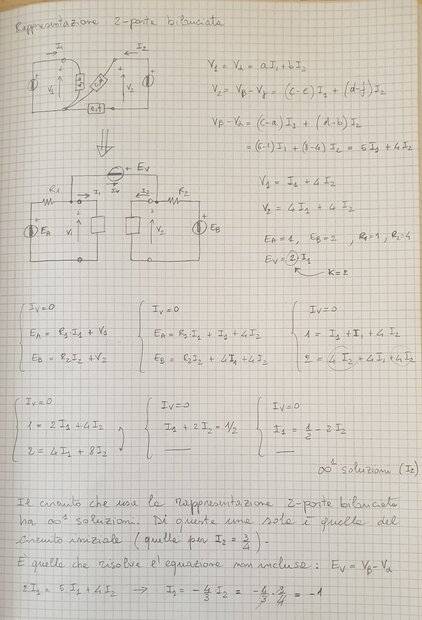 Rappresentazione 2-porte bilanciata
I1 I2
V1 V2 e,f
V1 = Vα = aI1 + bI2
V2 = Vβ - Vγ = (c-e)I1 + (d-f)I2
Vβ - Vα = (c-a)I1 + (d-b)I2
= (6-1)I1 + (8-4)I2 = 5I1 + 4I2
+ EV
R1 I1 IV I2 R2
EA V1 V2 EB
V1 = I1 + 4I2
V2 = 4I1 + 4I2
EA = 1, EB = 2, R1 = 1, R2 = 4
EV = 2 I1
K = 2
IV = 0
EA = R1I1 + V1
EB = R2I2 + V2
IV = 0
EA = R1I1 + I1 + 4I2
EB = R2I2 + 4I1 + 4I2
IV = 0
1 = I1 + I1 + 4I2
2 = 4I2 + 4I1 + 4I2
IV = 0
1 = 2I1 + 4I2
2 = 4I1 + 8I2
IV = 0
I1 + 2I2 = 1/2
IV = 0
I1 = 1/2 - 2I2
∞¹ soluzioni (I2)
Il circuito che usa la rappresentazione 2-porte bilanciata
ha ∞¹ soluzioni. Di queste una sola è quella del
circuito iniziale (quella per I2 = 3/4).
È quella che risolve l'equazione non inclusa: EV = Vβ - Vα
2I1 = 5I1 + 4I2 → I1 = -4/3 I2 = -4/3 · 3/4 = -1